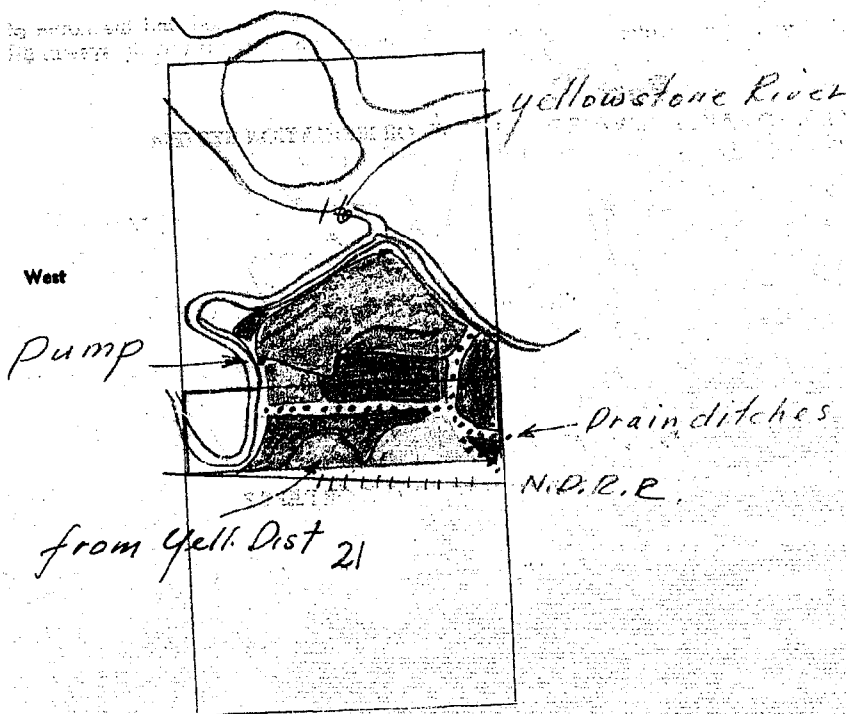 yellowstone River
16
West
Pump
Drain ditches
N.P.R.R.
from Yell. Dist
21